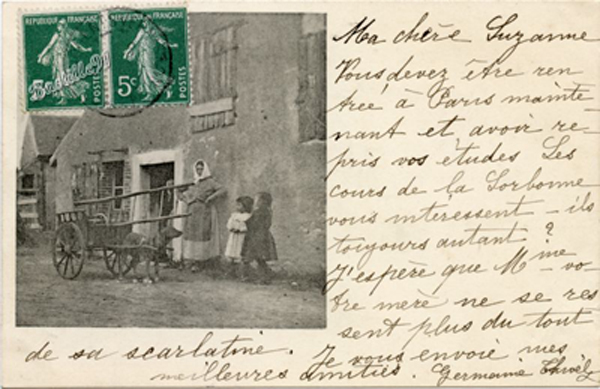 REPUBLIQUE FRANCAISE
REPUBLIQUE FRANÇAISE
5c
5c
POSTES
POSTES
Ma chère Suzanne
Vous devez être ren
trée à Paris mainte-
nant et avoir re-
pris vos études Les
cours de la Sorbonne
vous intéressent-ils
toujours autant?
J'espère que Mme vo-
tre mère ne se res
sent plus du tout
de sa scarlatine. Je vous envoie mes
meilleures amitiés. Germaine